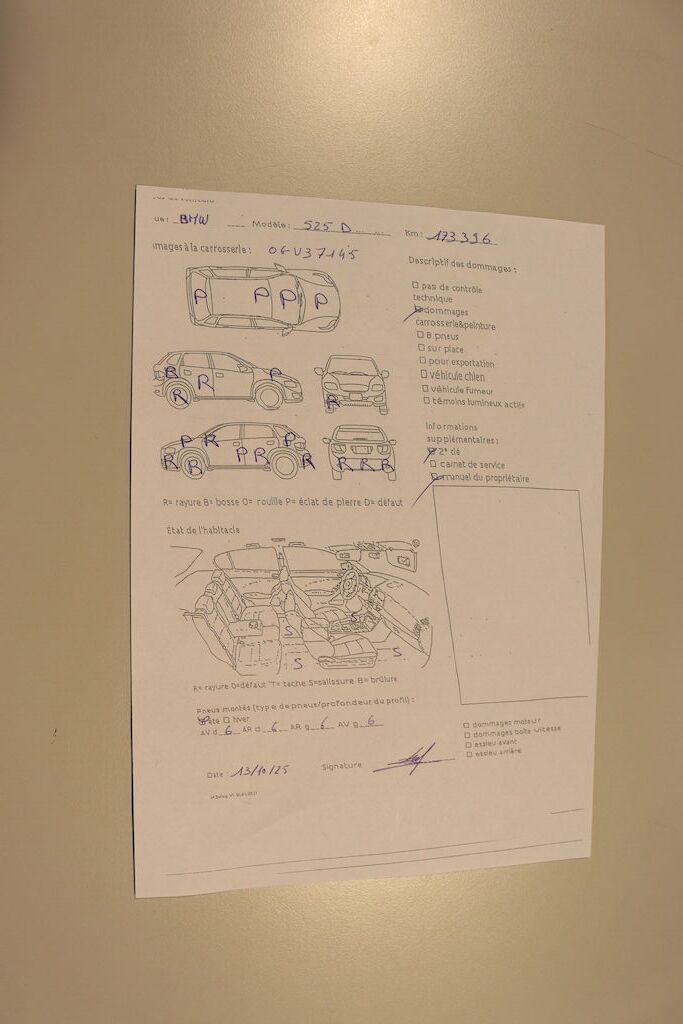 ue: BMW Modèle: 525 D Km: 173396
mages à la carrosserie: 06V37145
Descriptif des dommages:
P P P P
□ pas de contrôle
technique
dommages
carrosserie&peinture
□ 8 pneus
□ sur place
□ pour exportation
□ véhicule chien
□ véhicule fumeur
□ témoins lumineux actifs
R R R P R
P R P R P R R R R R R
Informations
supplémentaires:
2° clé
□ carnet de service
manuel du propriétaire
R= rayure B= bosse O= rouille P= éclat de pierre D= défaut
État de l'habitacle
S S S S
R= rayure D=défaut T= tache S=salissure B= brûlure
Pneus montés (type de pneus/profondeur du profil):
été □ hiver
AV d 6 AR d 6 AR g 6 AV g 6
□ dommages moteur
□ dommages boîte vitesse
□ essieu avant
□ essieu arrière
Date: 13/10/25 Signature